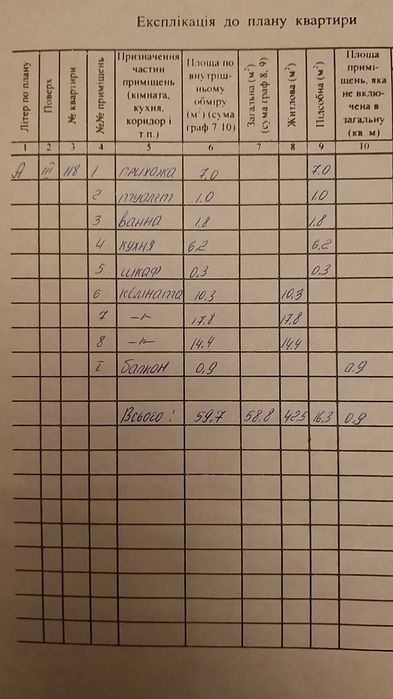 Експлікація до плану квартири
Літер по плану | Поверх | № квартири | №№ приміщень | Призначення частин приміщень (кімната, кухня, коридор і т п.) | Площа по внутріш- ньому обміру (м²) (сума граф 7 10) | Загальна (м²) (сума граф 8, 9) | Житлова (м²) | Підсобна (м²) | Площа примі- щень, яка не вклю- чена в загальну (кв м)
1 2 3 4 5 6 7 8 9 10
А III 118 1 прихожа 7,0 7.0
2 туалет 1.0 1.0
3 ванна 1.8 1.8
4 кухня 6,2 6,2
5 шкаф 0,3 0.3
6 кімната 10.3 10.3
7 -"- 17.8 17.8
8 -"- 14.4 14.4
I балкон 0,9 0.9
Всього: 59.7 58.8 42.5 16,3 0.9